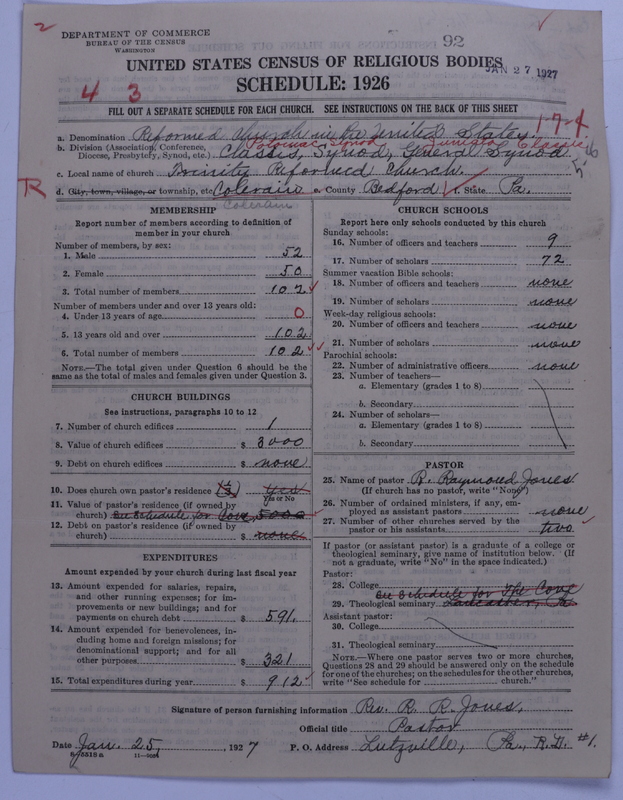 2
DEPARTMENT OF COMMERCE
BUREAU OF THE CENSUS
WASHINGTON
92
UNITED STATES CENSUS OF RELIGIOUS BODIES
JAN 27 1927
SCHEDULE: 1926
4 3
FILL OUT A SEPARATE SCHEDULE FOR EACH CHURCH. SEE INSTRUCTIONS ON THE BACK OF THIS SHEET
17-4
a. Denomination Reformed Church in the United States
Potomac Synod Juniata Classis
b. Division (Association, Conference, Diocese, Presbytery, Synod, etc.) Classis, Synod, General Synod
c. Local name of church Trinity Reformed Church.
R
d. City, town, village, or township, etc. Colerain e. County Bedford f. State Pa.
Colerain
MEMBERSHIP
Report number of members according to definition of
member in your church
Number of members, by sex:
1. Male 52
2. Female 50
3. Total number of members 102
Number of members under and over 13 years old:
4. Under 13 years of age 0
5. 13 years old and over 102
6. Total number of members 102
NOTE.—The total given under Question 6 should be the
same as the total of males and females given under Question 3.
CHURCH BUILDINGS
See instructions, paragraphs 10 to 12
7. Number of church edifices 1
8. Value of church edifices $ 3000
9. Debt on church edifices $ none
10. Does church own pastor's residence (1/3) Yes
Yes or No
11. Value of pastor's residence (if owned by
church) See Schedule for Cove, 5000
12. Debt on pastor's residence (if owned by
church) $ none
EXPENDITURES
Amount expended by church during last fiscal year
13. Amount expended for salaries, repairs,
and other running expenses; for im-
provements or new buildings; and for
payments on church debt $ 591.
14. Amount expended for benevolences, in-
cluding home and foreign missions; for
denominational support; and for all
other purposes $ 321
15. Total expenditures during year $ 912
CHURCH SCHOOLS
Report here only schools conducted by this church
Sunday schools:
16. Number of officers and teachers 9
17. Number of scholars 72
Summer vacation Bible schools:
18. Number of officers and teachers none
19. Number of scholars none
Week-day religious schools:
20. Number of officers and teachers none
21. Number of scholars none
Parochial schools:
22. Number of administrative officers none
23. Number of teachers—
a. Elementary (grades 1 to 8)
b. Secondary
24. Number of scholars—
a. Elementary (grades 1 to 8)
b. Secondary
PASTOR
25. Name of pastor R. Raymond Jones
(If church has no pastor, write "None")
26. Number of ordained ministers, if any, em-
ployed as assistant pastors none
27. Number of other churches served by the
pastor or his assistants two
If pastor (or assistant pastor) is a graduate of a college or
theological seminary, give name of institution below. (If
not a graduate, write "No" in the space indicated.)
Pastor:
28. College See Schedule for The Cove
29. Theological seminary Lancaster, Pa
Assistant pastor:
30. College
31. Theological seminary
NOTE.—Where one pastor serves two or more churches,
Questions 28 and 29 should be answered only on the schedule
for one of the churches; on the schedules for the other churches,
write "See schedule for church."
Signature of person furnishing information Rev. R. R. Jones,
Official title Pastor
Date Jan. 25, 1927 P. O. Address Lutzville, Pa., R.D. #1.